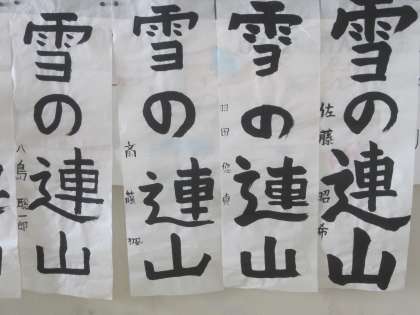 雪の連山
佐藤昭希
雪の連山
羽田悠貴
雪の連山
斎藤
雪の連山
八島聡一郎